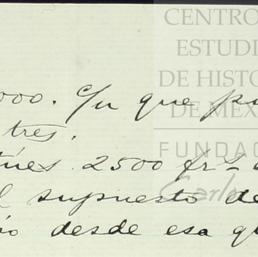 CENTRO
ESTUDI
DE HISTO
DE MEX
FUNDAC
Carlo
000. c/u que pa
tres.
tínes. 2500 frs
l supuesto de
desde esa qu